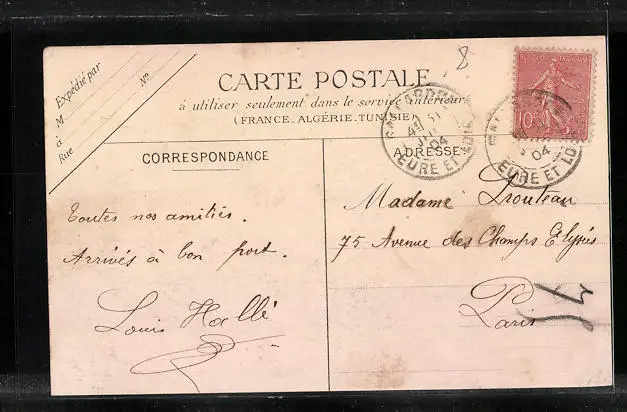 Expédié par
M
à
Rue
No
8
CARTE POSTALE
à utiliser seulement dans le service intérieur
(FRANCE - ALGÉRIE - TUNISIE)
CORRESPONDANCE
ADRESSE
RÉPUBLIQUE FRANÇAISE
10
04
EURE ET LOIR
04
EURE ET LOIR
Toutes nos amitiés.
Arrivés à bon port.
Louis Hallé
Madame Prouteau
75 Avenue des Champs Elysées
Paris